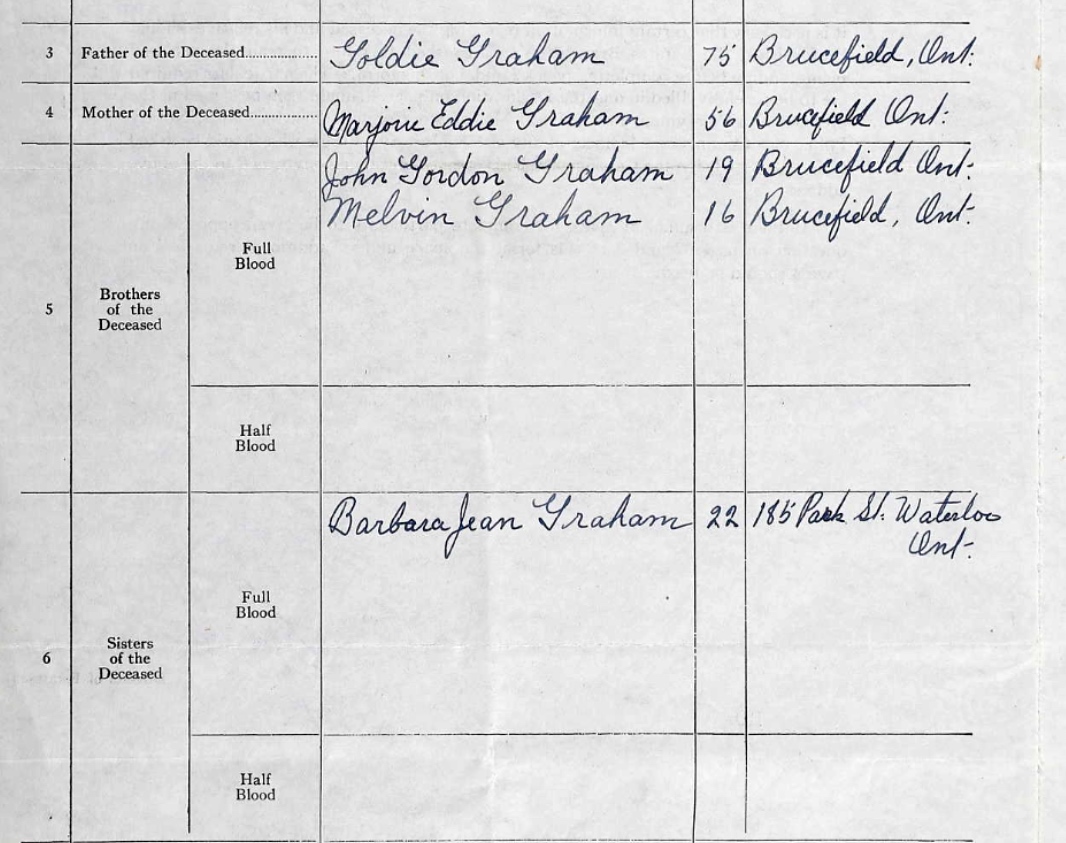 3 Father of the Deceased.................... Goldie Graham 75 Brucefield, Ont.
4 Mother of the Deceased.................. Marjorie Eddie Graham 56 Brucefield Ont.
John Gordon Graham 19 Brucefield Ont.
Melvin Graham 16 Brucefield, Ont.
Full
Blood
5 Brothers
of the
Deceased
Half
Blood
Barbara Jean Graham 22 185 Park St. Waterloo
Ont.
Full
Blood
6 Sisters
of the
Deceased
Half
Blood